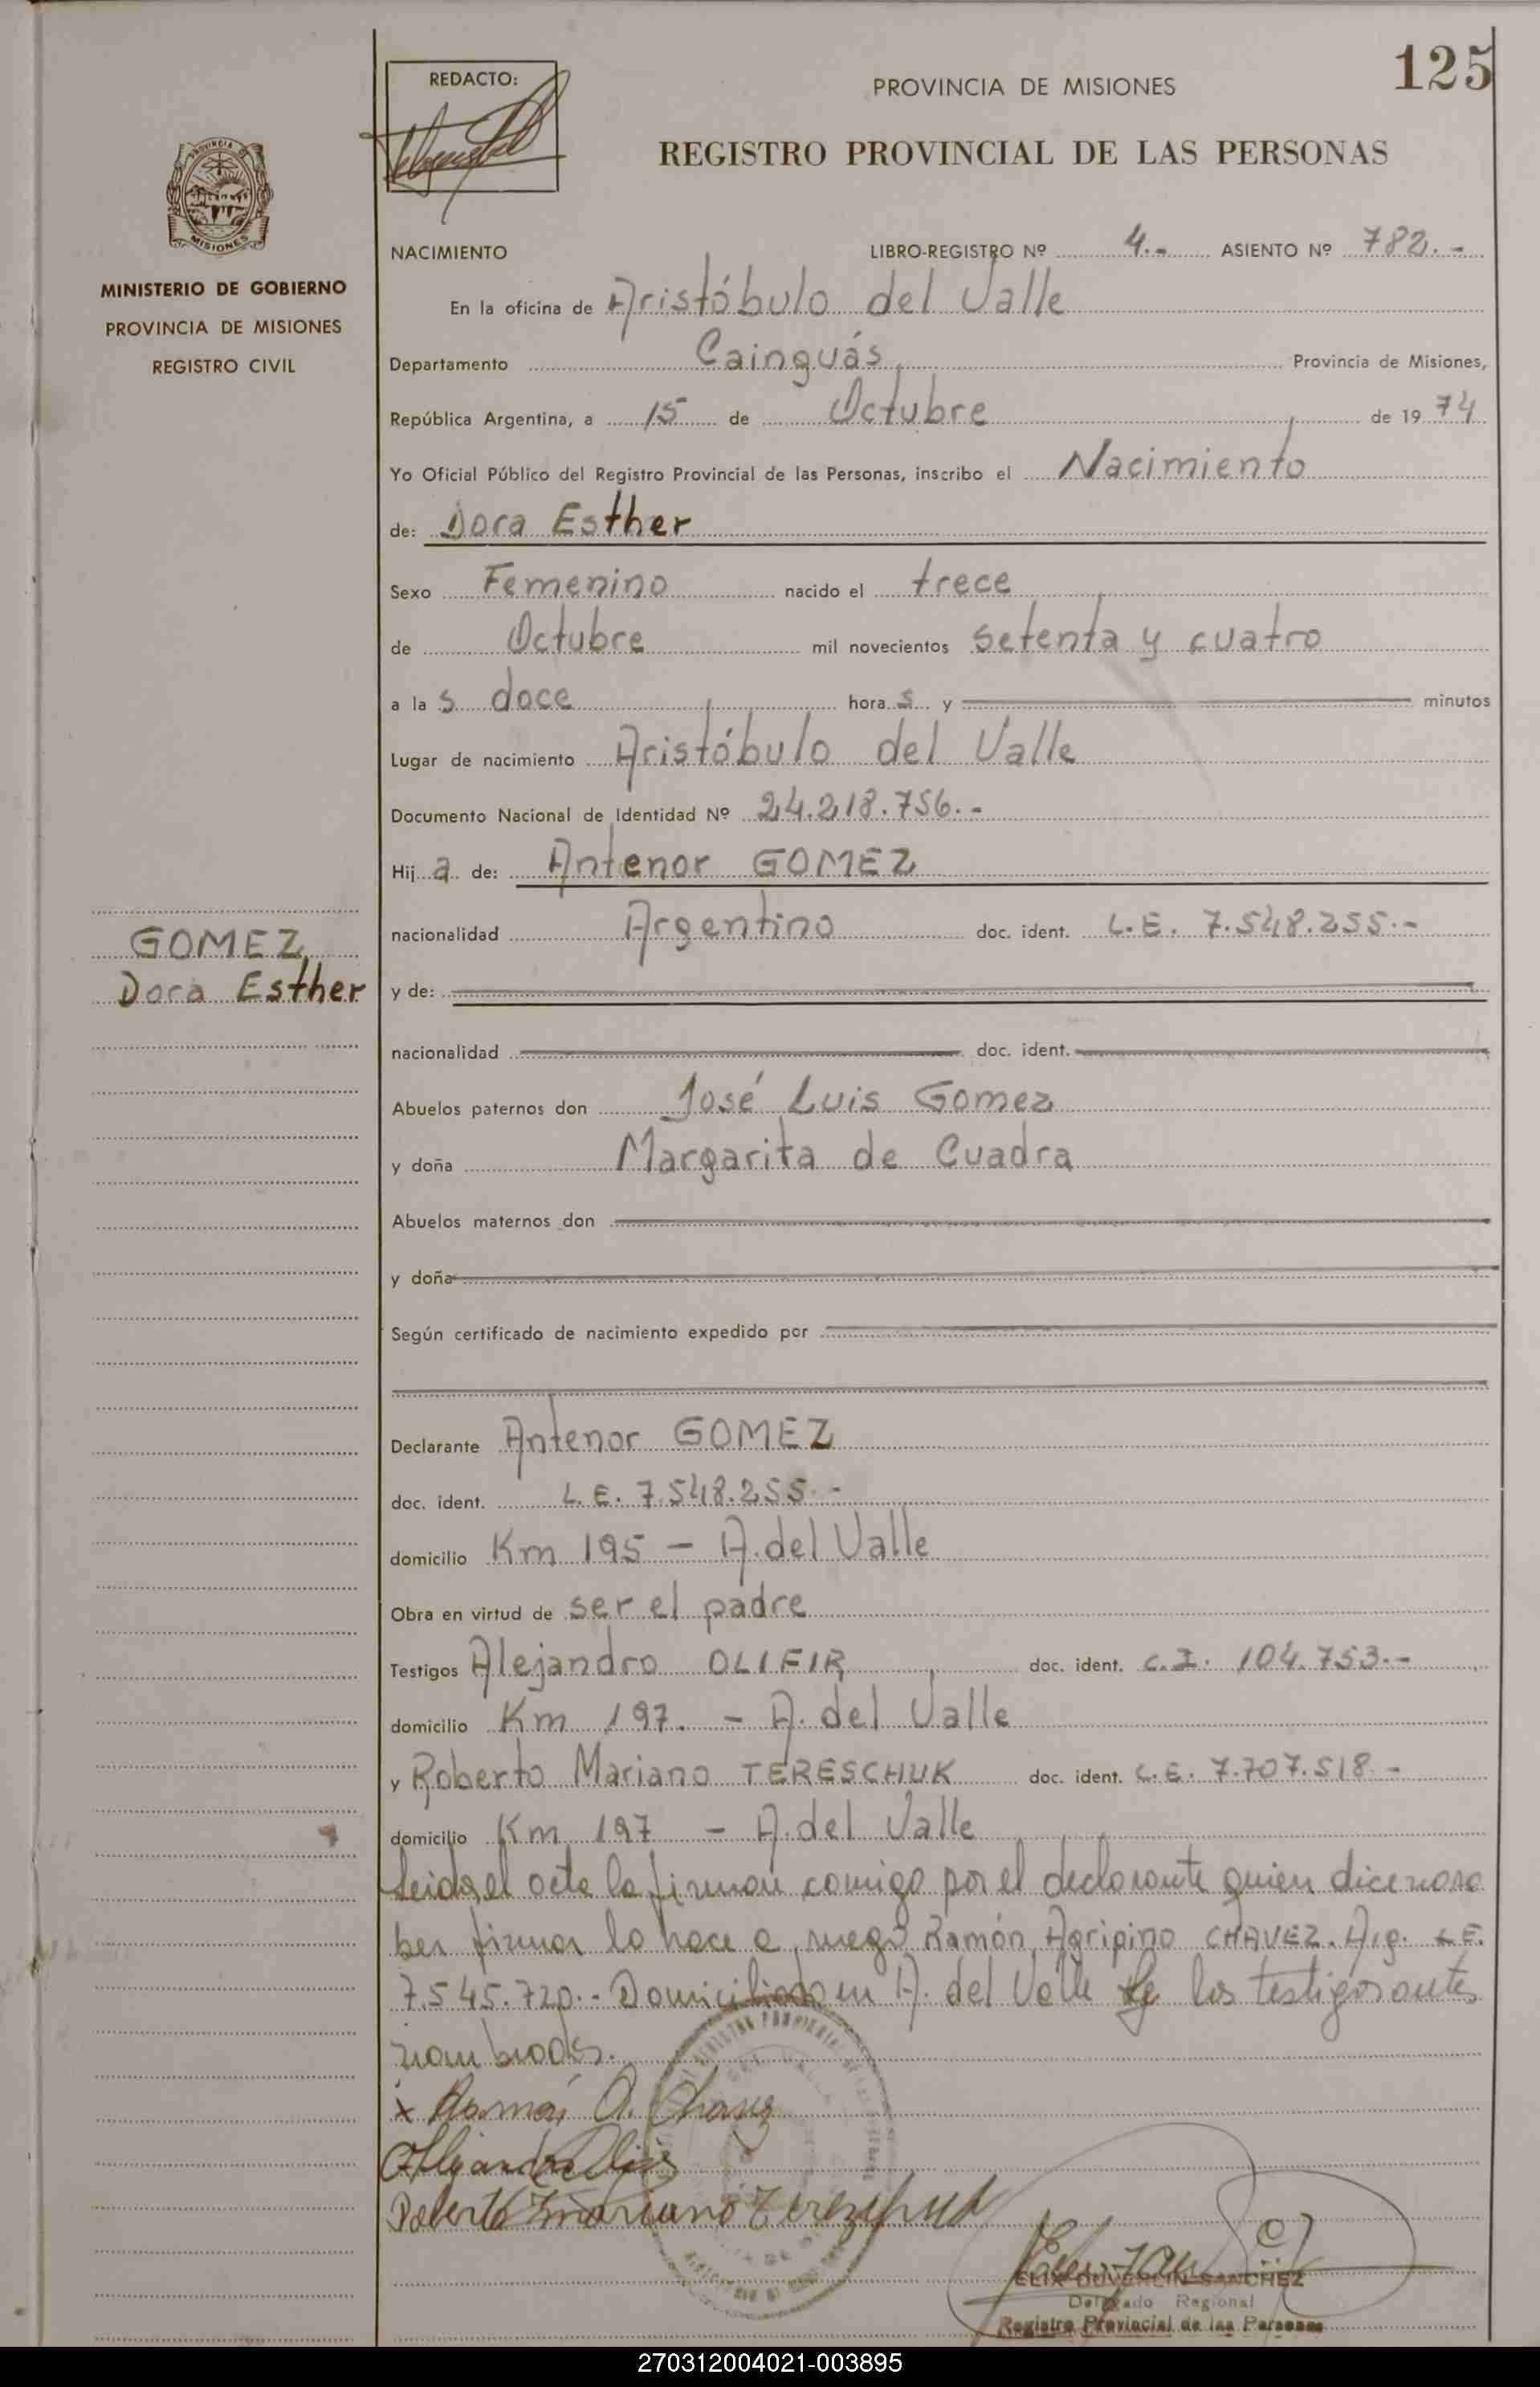 125
REDACTO:
PROVINCIA DE MISIONES
REGISTRO PROVINCIAL DE LAS PERSONAS
PROVINCIA DE
MISIONES
MINISTERIO DE GOBIERNO
PROVINCIA DE MISIONES
REGISTRO CIVIL
NACIMIENTO LIBRO-REGISTRO Nº 4.- ASIENTO Nº 782.-
En la oficina de Aristóbulo del Valle
Departamento Cainguás, Provincia de Misiones,
República Argentina, a 15 de Octubre de 1974
Yo Oficial Público del Registro Provincial de las Personas, inscribo el Nacimiento
de: Dora Esther
Sexo Femenino nacido el trece
de Octubre mil novecientos setenta y cuatro
a la s doce hora s y minutos
Lugar de nacimiento Aristóbulo del Valle
Documento Nacional de Identidad Nº 24.218.756.-
Hij a de: Antenor GOMEZ
nacionalidad Argentino doc. ident. L.E. 7.548.255.-
GOMEZ,
Dora Esther
y de:
nacionalidad doc. ident.
Abuelos paternos don José Luis Gomez
y doña Margarita de Cuadra
Abuelos maternos don
y doña
Según certificado de nacimiento expedido por
Declarante Antenor GOMEZ
doc. ident. L.E. 7.548.255.-
domicilio Km 195 - A. del Valle
Obra en virtud de ser el padre
Testigos Alejandro OLIFIR doc. ident. C.I. 104.753.-
domicilio Km 197. - A. del Valle
y Roberto Mariano TERESCHUK doc. ident. L.E. 7.707.518.-
domicilio Km 197 - A. del Valle
Leida el acta la firman comigo por el declarante quien dice no sa
ber firmar lo hace a ruego Ramón Agripino CHAVEZ. Arg. L.E.
7.545.720.- Domiciliado en A. del Valle y los testigos antes
nombrados.
x Ramón A. Chavez
Alejandro Olifir
Roberto Mariano Tereschuk
ELIX DUVERLIN SANCHEZ
Delegado Regional
Registro Provincial de las Personas
270312004021-003895